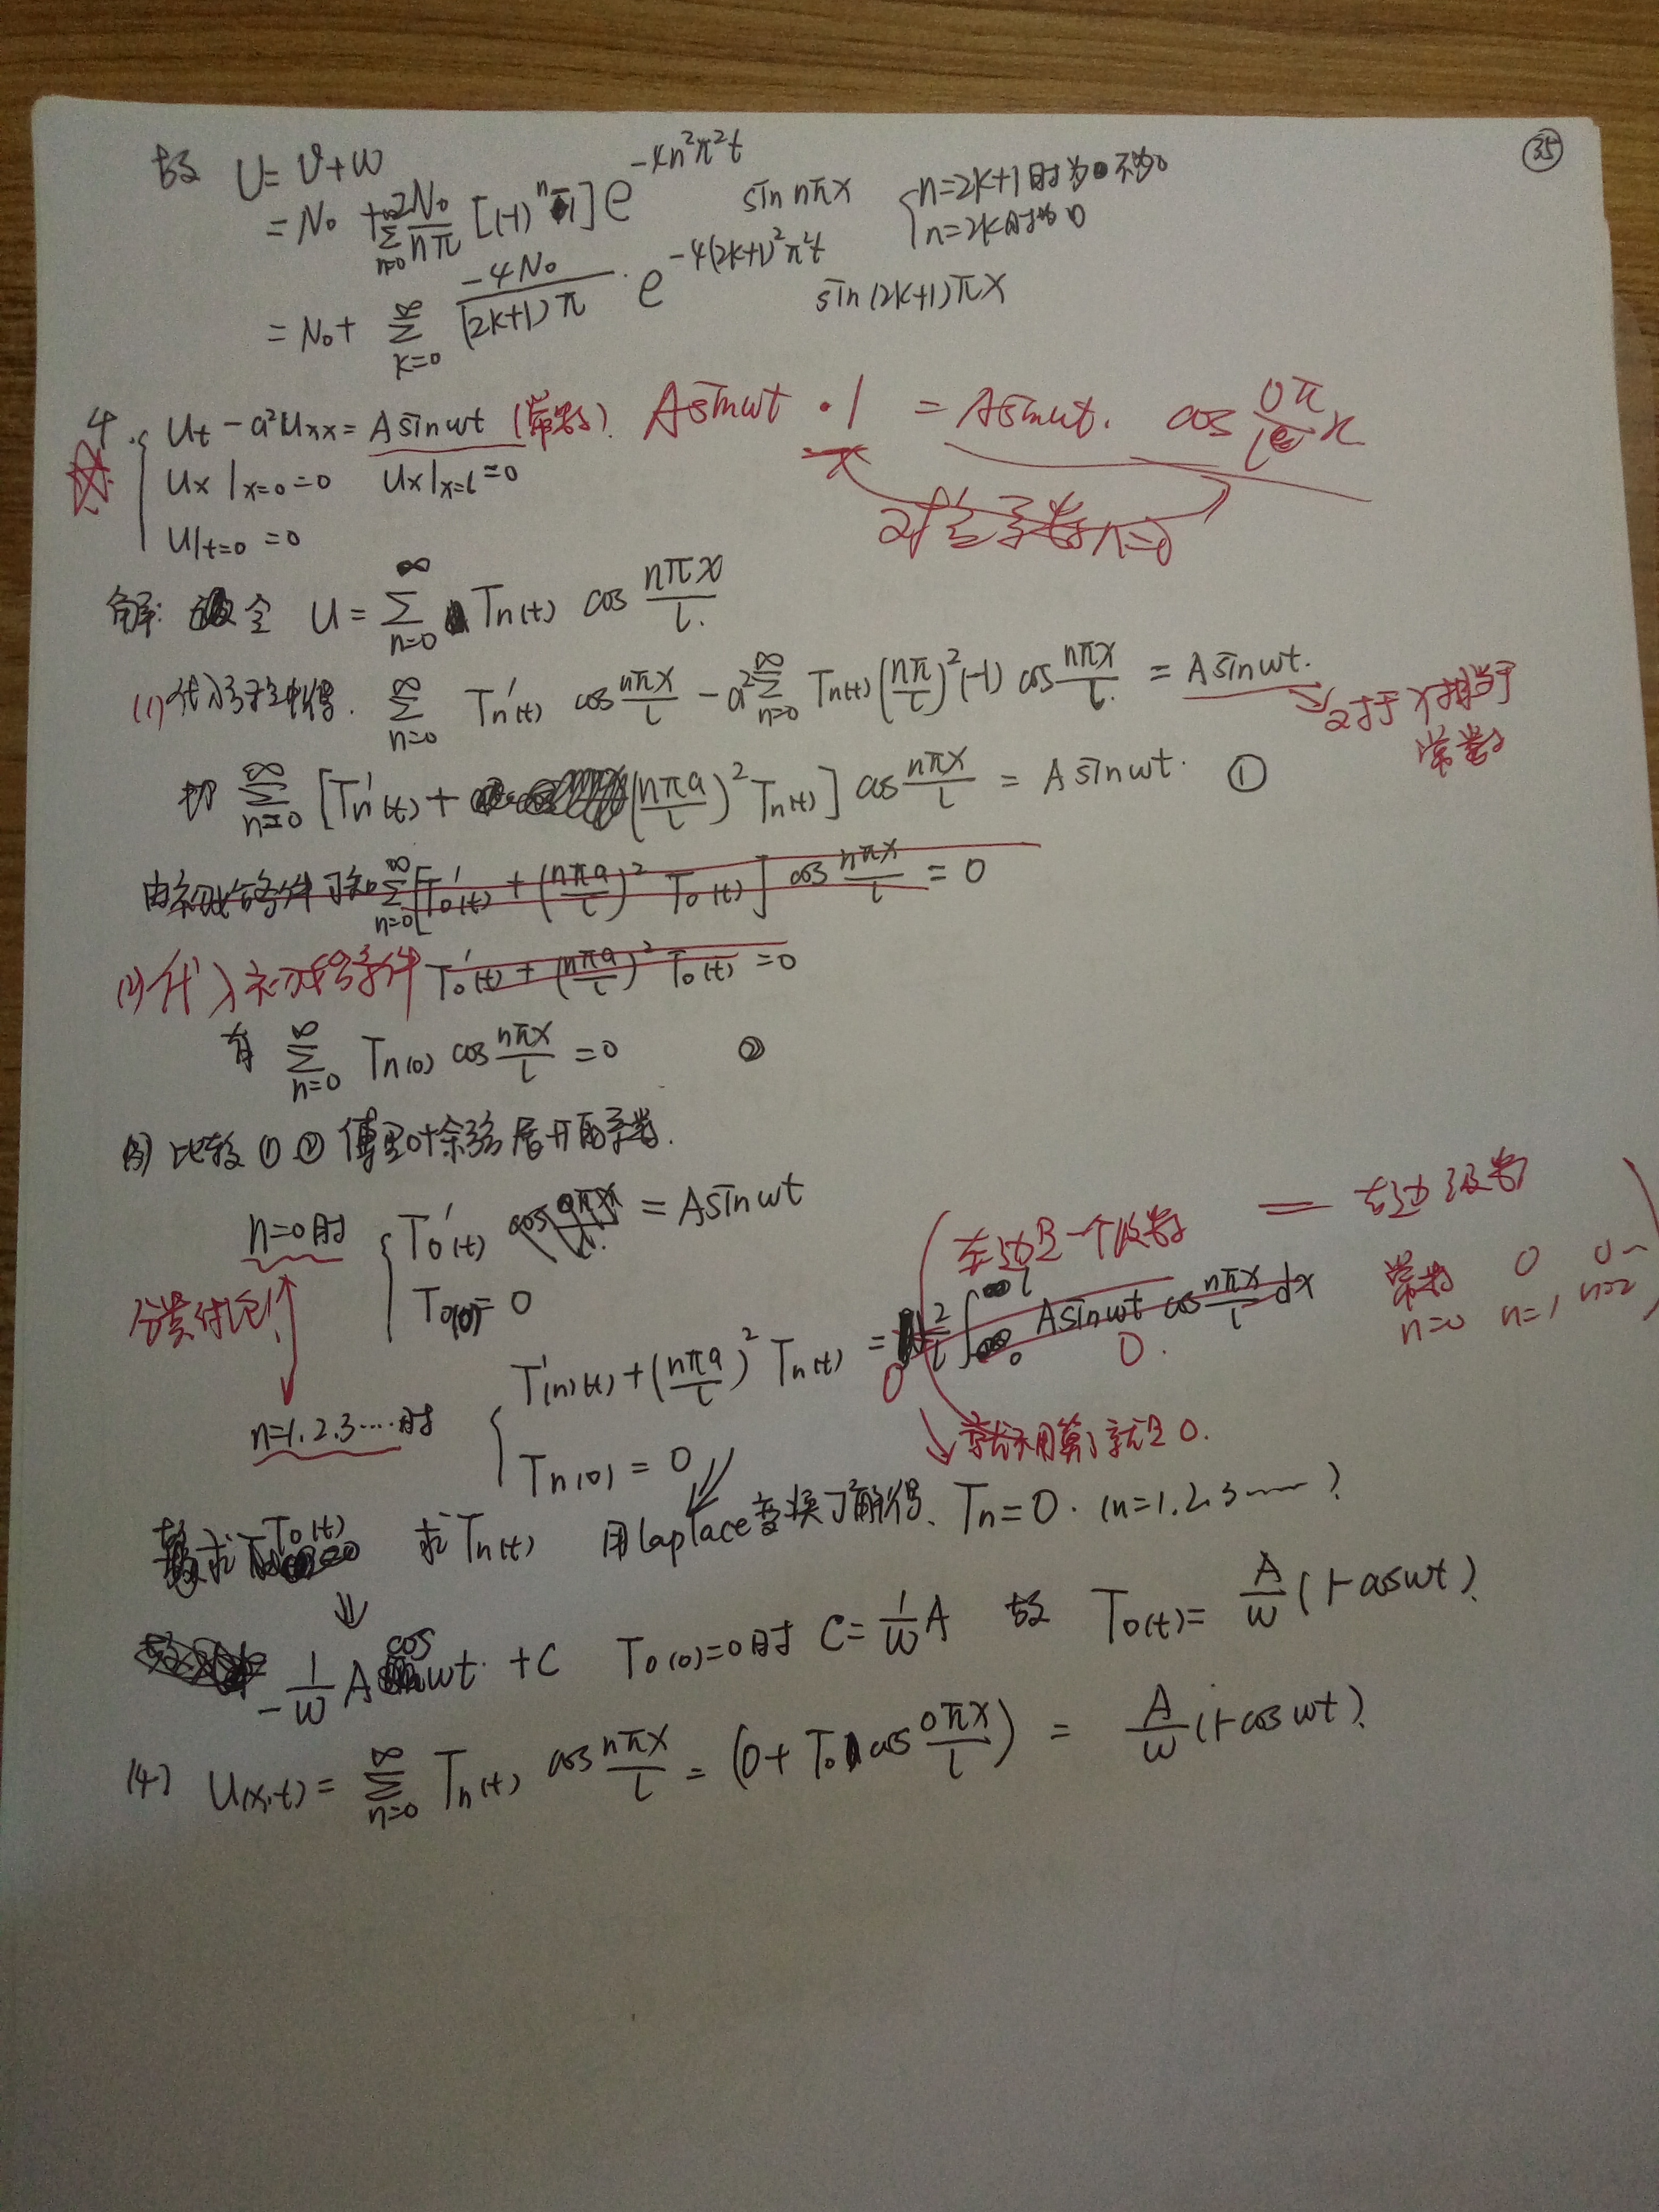 ㉟
故 U=v+w
=N₀+∑_{n=0}^{∞} 2N₀/nπ [(-1)ⁿ-1] e^{-4n²π²t} sin nπx { n=2k+1时为不为0
n=2k时为0
=N₀+∑_{k=0}^{∞} -4N₀/(2k+1)π · e^{-4(2k+1)²π²t} sin(2k+1)πx
4. { Ut-a²Uxx=A sinωt (常数). A sinωt · 1 = A sinωt · cos 0π/l x
Ux|x=0=0 Ux|x=l=0
对应系数n=0
U|t=0=0
解: 令 U=∑_{n=0}^{∞} Tn(t) cos nπx/l.
(1)代入方程中得. ∑_{n=0}^{∞} Tn'(t) cos nπx/l - a²∑_{n=0}^{∞} Tn(t)(nπ/l)²(-1) cos nπx/l = A sinωt.
对于x相当于
常数
即 ∑_{n=0}^{∞} [Tn'(t)+(nπa/l)² Tn(t)] cos nπx/l = A sinωt. ①
由初始条件可知 ∑_{n=0}^{∞} [T₀'(t)+(nπa/l)² T₀(t)] cos nπx/l = 0
(2)代入初始条件 T₀'(t)+(nπa/l)² T₀(t)=0
有 ∑_{n=0}^{∞} Tn(0) cos nπx/l = 0 ②
(3) 比较①② 傅里叶余弦展开的系数.
n=0时 { T₀'(t) cos 0πx/l = A sinωt
T₀(0)=0
左边是一个级数 = 右边级数
常数 0 0~
n=0 n=1 n=2
分类讨论!
n=1.2.3....时 { T'(n)(t)+(nπa/l)² Tn(t) = 2/l ∫₀^l A sinωt cos nπx/l dx
0 0.
Tn(0)=0
就不用算了就是0.
求T₀(t) 求Tn(t) 用Laplace变换可解得. Tn=0. (n=1.2.3……)
-1/ω A cosωt+C T₀(0)=0时 C=1/ω A 故 T₀(t)=A/ω(1-cosωt).
(4) U(x,t)=∑_{n=0}^{∞} Tn(t) cos nπx/l = (0+T₀ cos 0πx/l) = A/ω(1-cosωt).